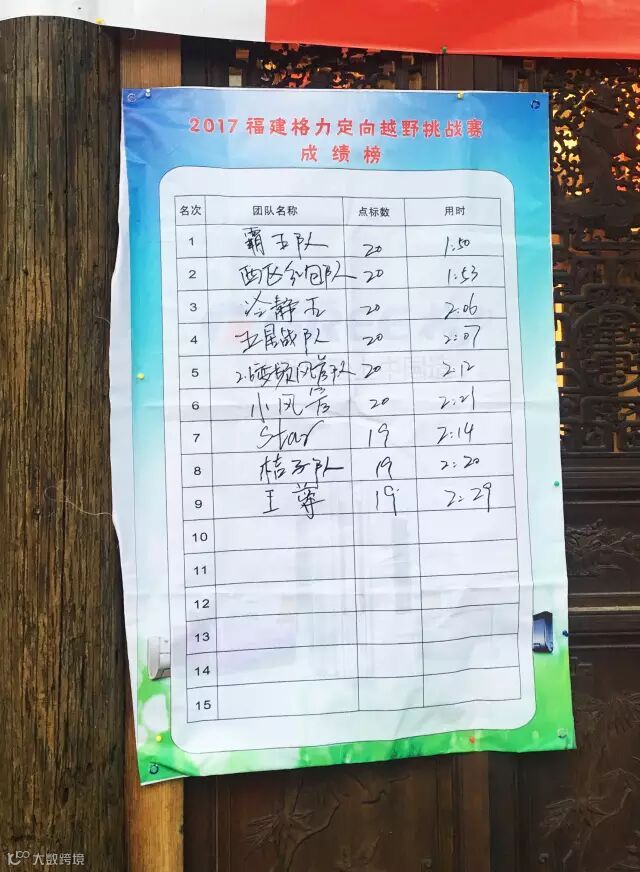 2017福建格力定向越野挑战赛
成绩榜
名次 团队名称 点标数 用时
1 霸王队 20 1:50
2 西区红包队 20 1:53
3 冷静王 20 2:06
4 五星战队 20 2:07
5 风管队 20 2:12
6 小风管 20 2:21
7 Star 19 2:14
8 桔子队 19 2:20
9 王尊 19 2:29
10
11
12
13
14
15
大数跨境